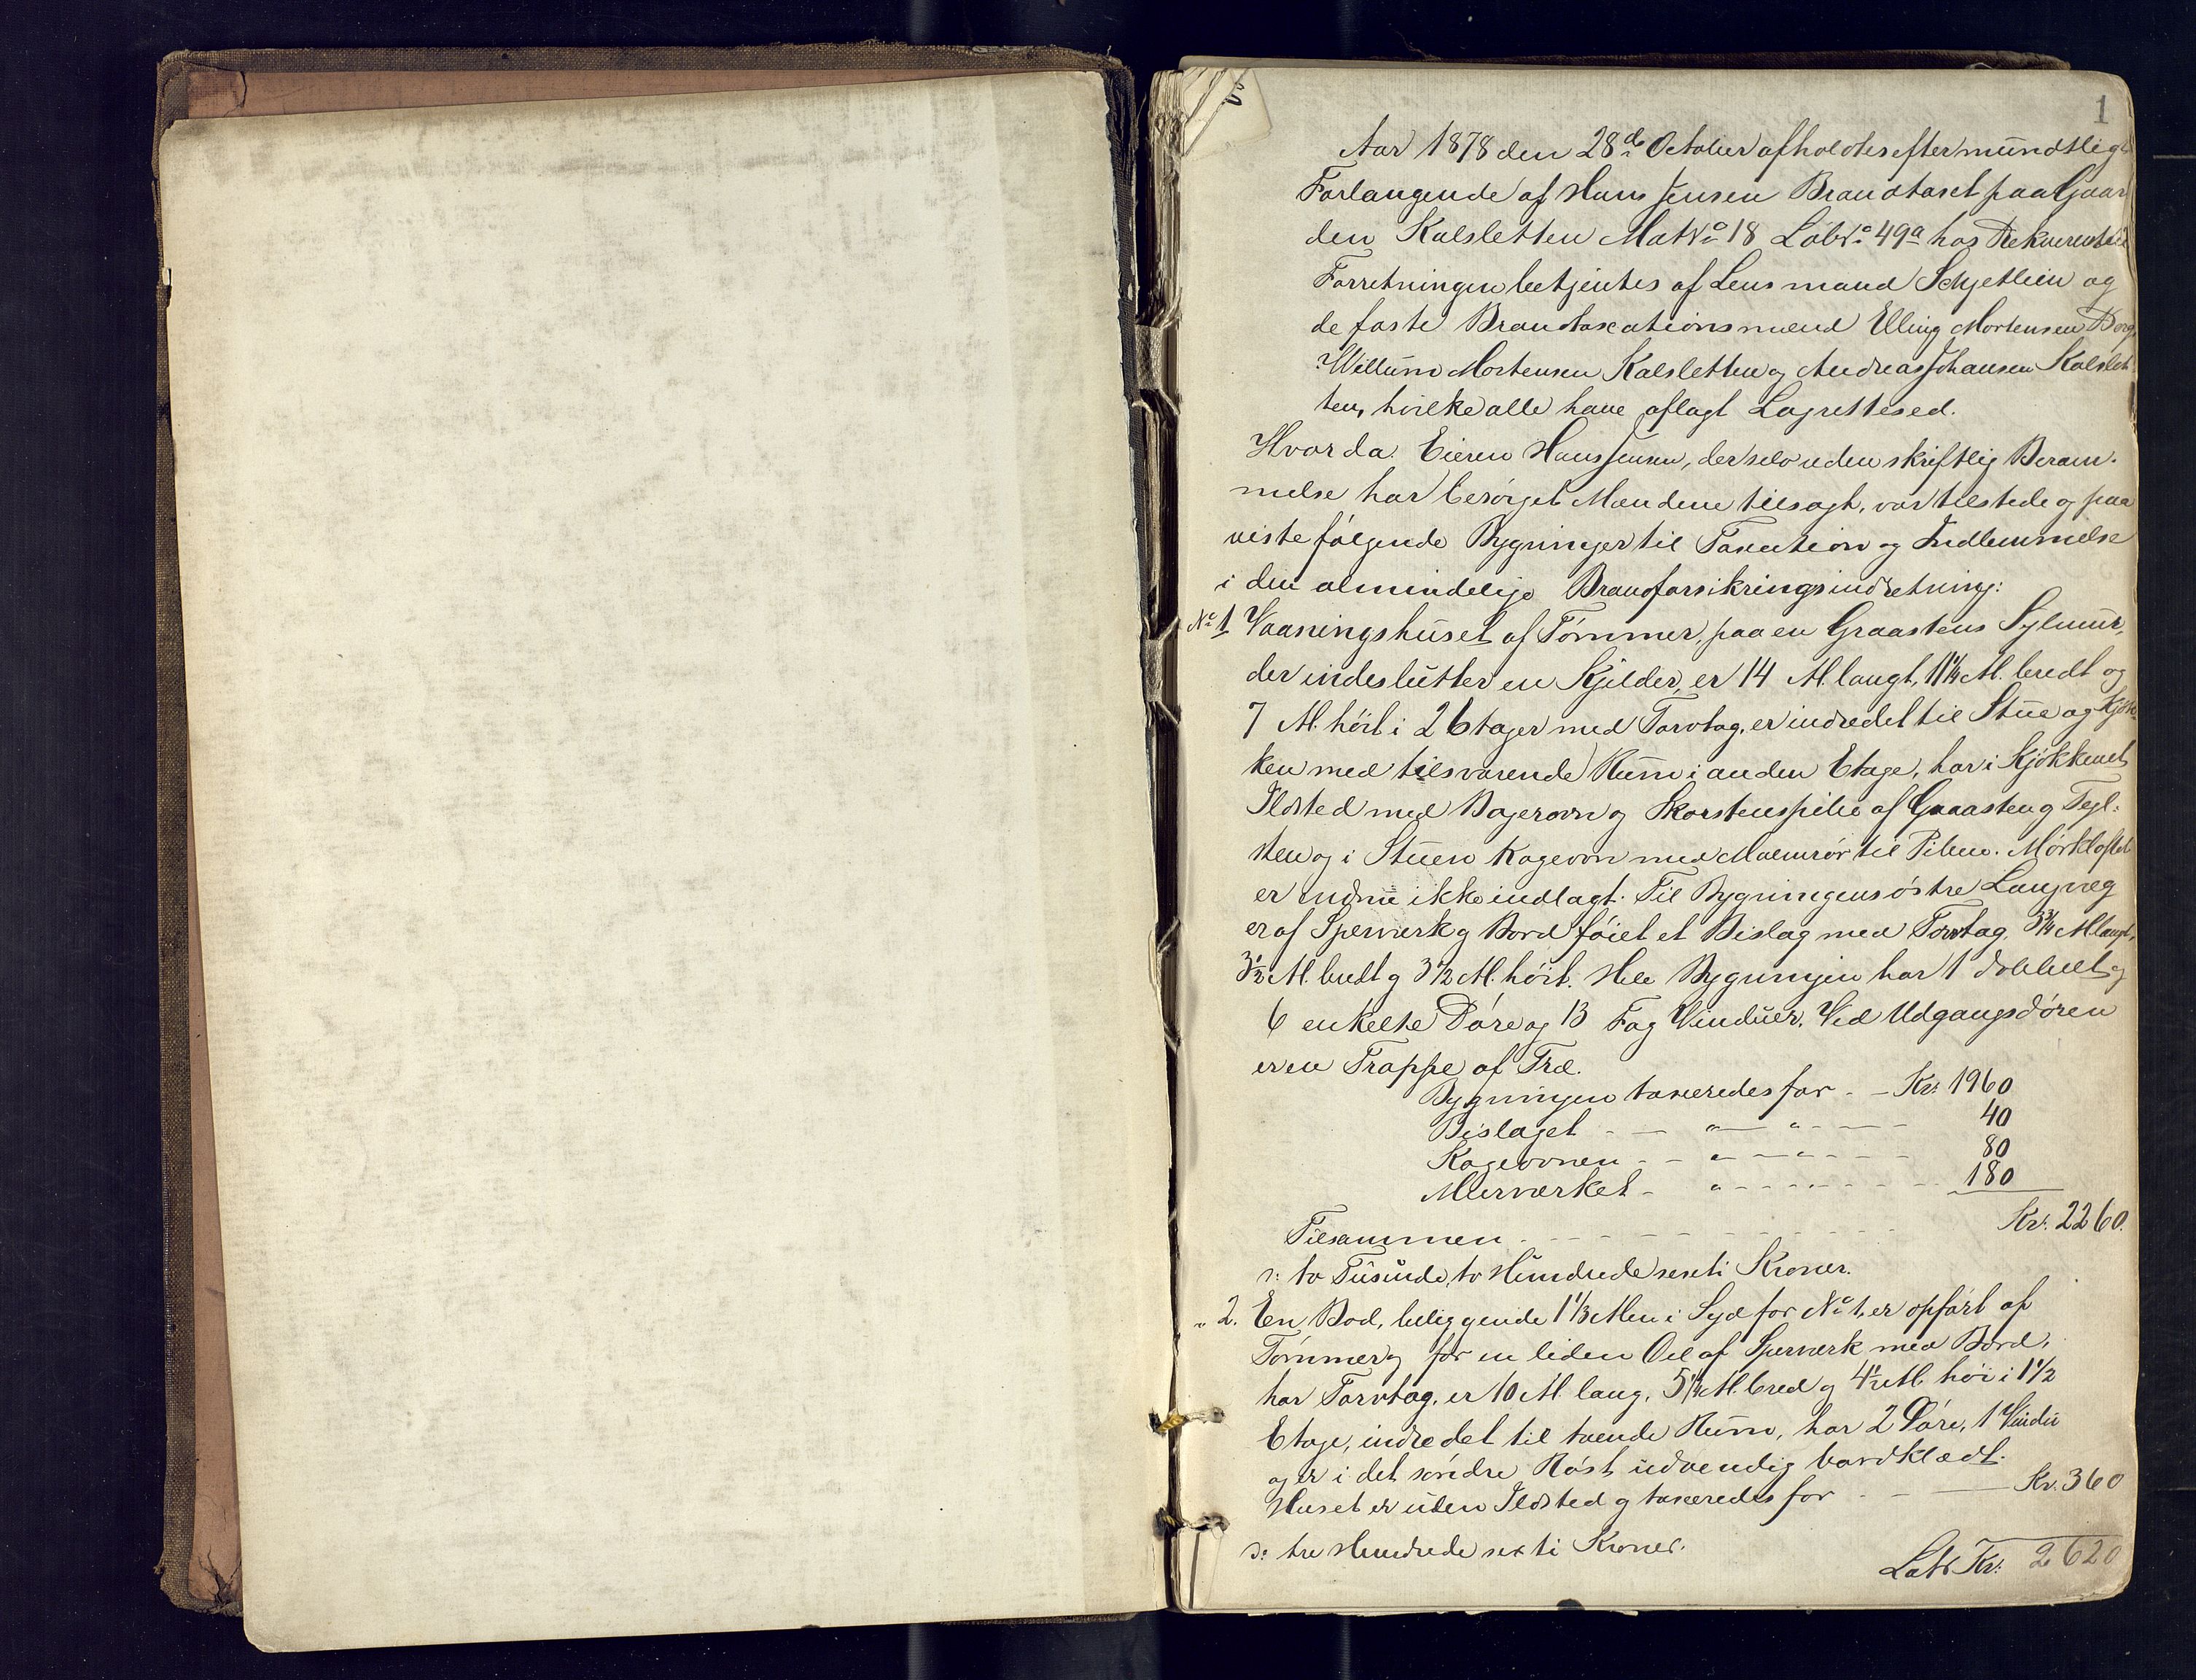 1
Aar 1878 den 28de October afholdtes efter mundtlig
Forlangende af Hans Jensen Brandtaxt paa Gaar
den Kalsletten Mat No 18 Løb No 49a hos Rekvirenten
Forretningen betjentes af Lensmand Schjetlein og
de faste Brandtaxationsmænd Elling Mortensen
Willum Mortensen Kalsletten og Andreas Johansen Kalslet
ten, hvilke alle have aflagt Lagrettesed.
Hvor da Eieren Hans Jensen, der selv uden skriftlig Beram-
melse har besørget Mændene tilsagt, var tilstede og paa
viste følgende Bygninger til Taxation og Indlemmelse
i den almindelige Brandforsikringsindretning:
No 1 Vaaningshuset af Tømmer, paa en Graastens Sylmur,
der indeslutter en Kjelder, er 14 Al. langt, 11 1/4 Al. bredt og
7 Al. høit i 2 Etager med Torvtag, er indredet til Stue og Kjøk-
ken med tilsvarende Rum i anden Etage, har i Kjøkkenet
Ildsted med Bagerovn og Skorstenspibe af Graasten og Tegl-
sten og i Stuen Kogeovn med Malmrør til Piben. Mørkloftet
er endnu ikke indlagt. Til Bygningens østre Langvæg
er af Sperværk og Bord føiet et Bislag med Torvtag, 3 3/4 Al langt,
3 1/2 Al. bredt og 3 1/2 Al. høit. Hele Bygningen har 1 dobbelt og
6 enkelte Døre og 13 Fag Vinduer. Ved Udgangsdøren
er en Trappe af Træ.
Bygningen taxeredes for - - Kr. 1960
Bislaget - - " - " - - - 40
Kogeovnen - - " - " - - - 80
Murværket - " - - " - - - 180
Tilsammen - - - - - Kr. 2260.
ɔ: to Tusinde, to Hundrede sexti Kroner.
" 2. En Bod, beliggende 1 1/3 Alen i Syd for No 1, er opført af
Tømmer og for en liden Del af Sperværk med Bord,
har Torvtag, er 10 Al. lang, 5 1/4 Al. bred og 4 1/2 Al. høi i 1 1/2
Etage, indredet til tvende Rum, har 2 Døre, 1 Vindu
og er i det søndre Røst udvendig bordklædt.
Huset er uden Ildsted og taxeredes for - - Kr. 360
ɔ: tre Hundrede sexti Kroner.
Lats Kr. 2620